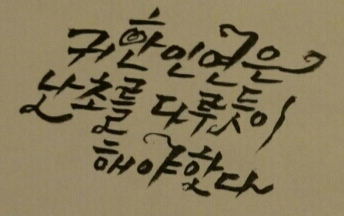 귀한 인연은
난초를 다루듯이
해야 한다